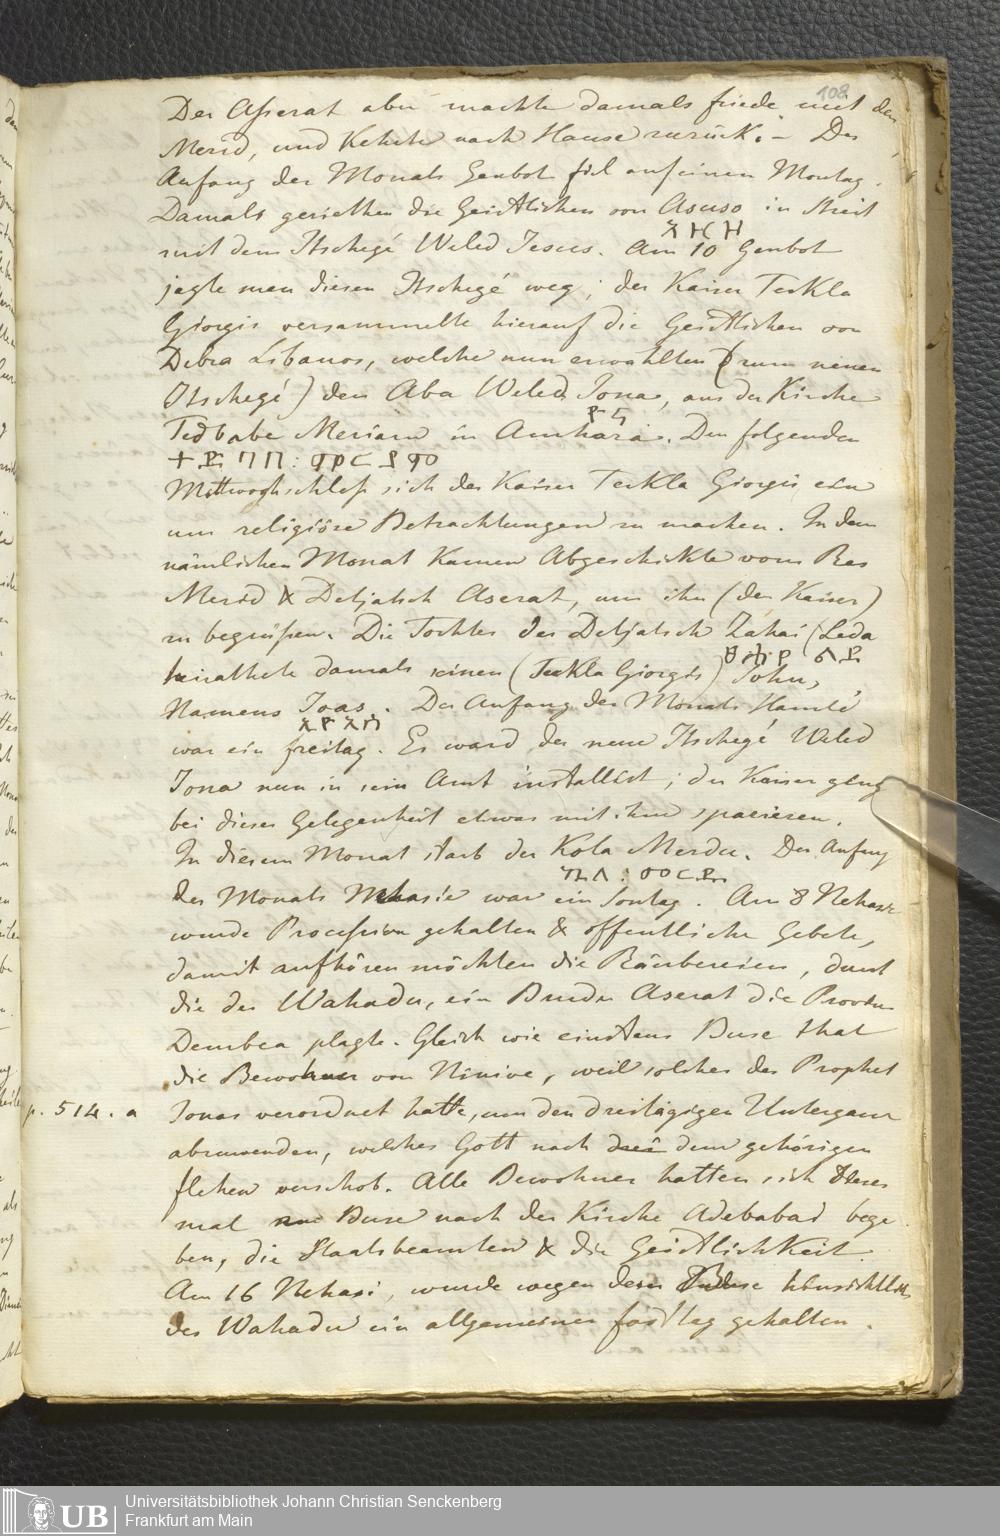 108
Der Asserat aber machte damals friede mit dem
Merid, und Kehrte nach Hause zurück. – Der
Anfang des Monats Genbot fiel auf einen Montag.
Damals geriethen die Geistlichen von Asuso in Streit
አዙዞ
mit dem Itschegé Weled Jesus. Am 10 Genbot
jagte man diesen Itschegé weg; der Kaiser Teckla
Giorgis versammelte hierauf die Geistlichen von
Debra Libanos, welche nun erwählten (zum neuen
Itschegé) den Aba Weled Jona, aus der Kirche
ዮና
Tedbabe Meriam in Amhara. Den folgenden
ተድባበ፡ ማርያም
Mittwoch schloss sich der Kaiser Teckla Giorgis ein
um religiöse Betrachtungen zu machen. In dem
nämlichen Monat Kamen Abgeschickte vom Ras
Merid & Detjatsch Aserat, um ihn (den Kaiser)
zu begrüßen. Die Tochter des Detjatsch Zahai (Leda
ፀሐይ ልዳ
heirathete damals seinen (Teckla Giorgis) Sohn,
Namens Joas. Der Anfang des Monats Hamlé
ኢዮአስ
war ein freitag. Es ward der neue Itschegé Weled
Jona nun in sein Amt installirt; der Kaiser gieng
bei dieser Gelegenheit etwas mit ihm spazieren.
In diesem Monat starb der Kola Merdu. Der Anfang
des Monats Nehasie war ein Sontag. Am 8 Nehasie
wurde Procession gehalten & öffentliche Gebete,
damit aufhören möchten die Räubereien, durch
die der Wahadu, ein Bruder Aserat die Provinz
Dembea plagte. Gleich wie einstens Buse that
die Bewohner von Ninive, weil solches der Prophet
p. 514. a Jonas verordnet hatte, um den dreitägigen Untergang
abzuwenden, welches Gott nach dem gehörigen
flehen verschob. Alle Bewohner hatten sich dieses
mal zur Buse nach der Kirche Adebabai bege
ben, die Staatsbeamten & die Geistlichkeit.
Am 16 Nehasi, wurde wegen der Buse hinsichtlich
des Wahadu ein allgemeiner fasttag gehalten.
UB
Universitätsbibliothek Johann Christian Senckenberg
Frankfurt am Main